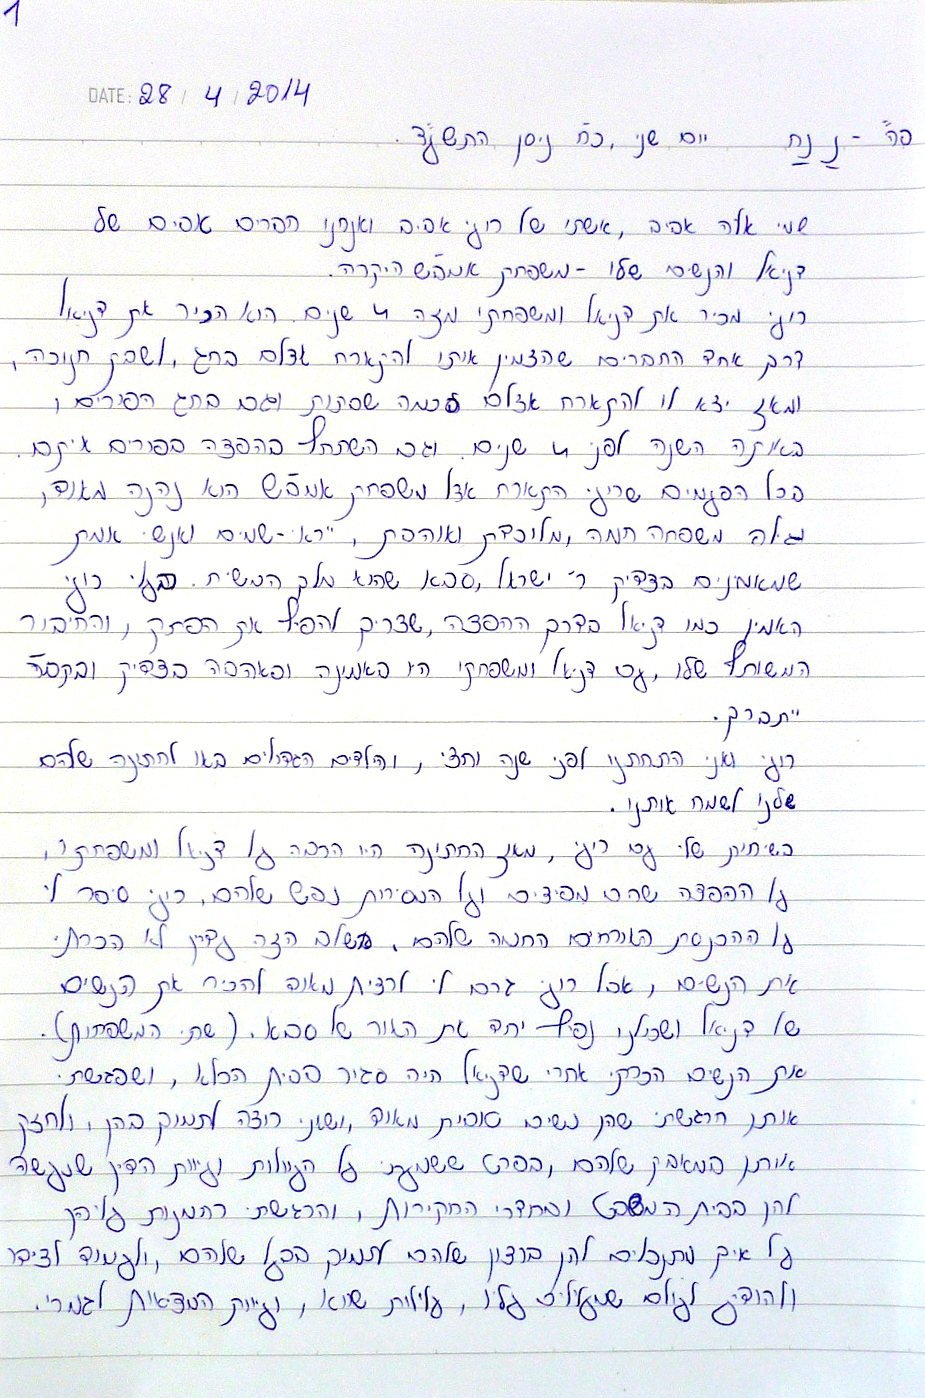 1
DATE: 28 / 4 / 2014
בס"ה - נ נח יום שני, כ"ח ניסן התשע"ד.
שמי אלה אביב, אשתו של רוני אביב ואנחנו חברים טובים של
דניאל והנשים שלו - משפחת אמבש היקרה.
רוני מכיר את דניאל ומשפחתו מזה 4 שנים. הוא הכיר את דניאל
דרך אחד החברים שהצמין איתו להתארח אצלם בחג, לשבת חנוכה,
ומאז יצא לו להתארח אצלם כמה שבתות וגם בחג הפורים,
באותה השנה לפני 4 שנים. וגם השתתף בהפצה בפורים איתם.
בכל הפעמים שרוני התארח אצל משפחת אמבש הוא נהנה מאוד,
וגילה משפחה חמה, מלוכדת ואוהבת, יראי-שמים ואנשי אמת
שמאמינים בצדיק ר' ישראל, סבא שהוא מלך המשיח. בעלי רוני
האמין כמו דניאל בדרך ההפצה, שצריך להפיץ את הפתק, והחיבור
המשותף שלו, עם דניאל ומשפחתו היו באמונה ובאהבה בצדיק ובקב"ה
יתברך.
רוני ואני התחתנו לפני שנה וחצי, והילדים הגדולים באו לחתונה שלהם
שלנו לשמח אותנו.
בשיחות שלי עם רוני, מאז החתונה היו הרבה על דניאל ומשפחתו,
על ההפצה שהם מפיצים ועל המסירות נפש שלהם. רוני סיפר לי
על ההכנסת האורחים החמה שלהם. בשלב הזה עדין לא הכרתי
את הנשים, אבל רוני גרם לי לרצות מאוד להכיר את הנשים
של דניאל ושכולנו נפיץ יחד את האור של סבא. (שתי המשפחות).
את הנשים הכרתי אחרי שדניאל היה סגור בבית הכלא, ושפגשתי
אותן הרגשתי שהן נשים טובות מאוד, ושאני רוצה לתמוך בהן, ולחזק
אותן במאבק שלהם, בפרט ששמעתי על העוולות ועיוות הדין שנעשה
להן בבית המשפט ובחדרי החקירות, והרגשתי רחמנות עליהן
על איך מתנכלים להן ברצון שלהם לתמוך בבעל שלהם, ולעמוד לצידו
ולהודיע לעולם שמעלילים עליו, עלילות שווא, ועיוות המציאות לגמרי.